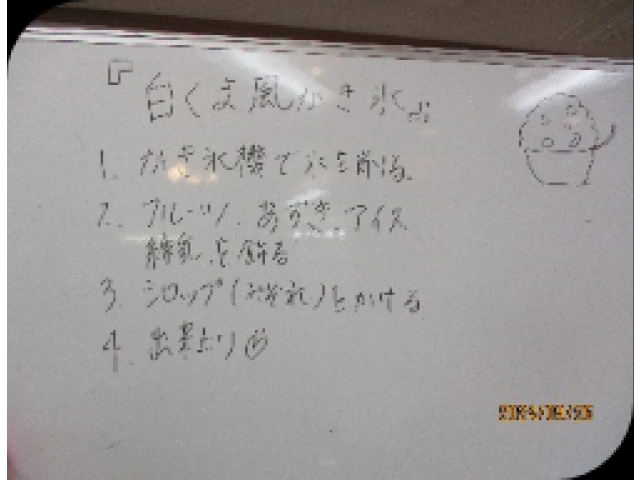 『白くま風かき氷』
1. かき氷機で氷を削る。
2. フルーツ、あずき、アイス
練乳を飾る
3. シロップ(みぞれ)をかける
4. 出来上り